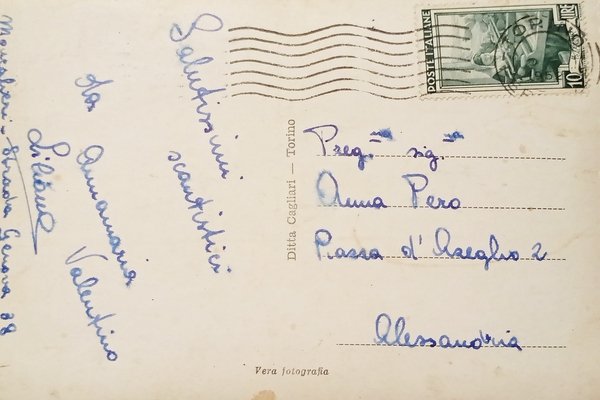 Salutissimi
scautistici
da Annamaria
Valentino
Liliana
Strada Genova 38
Ditta Cagliari — Torino
POSTE ITALIANE
LIRE
10
Preg.ma sig.na
Anna Pero
Piazza d'Azeglio 2
Alessandria
Vera fotografia